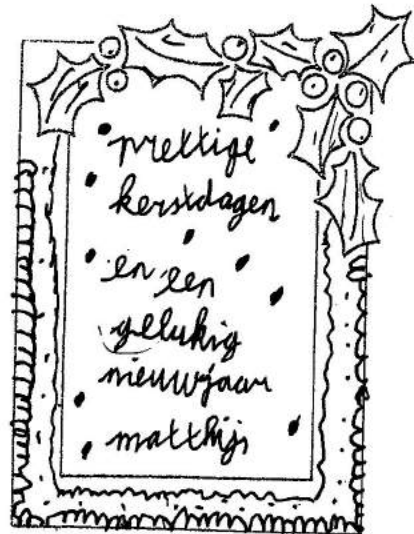 prettige
kerstdagen
en een
gelukig
nieuwjaar
matthijs